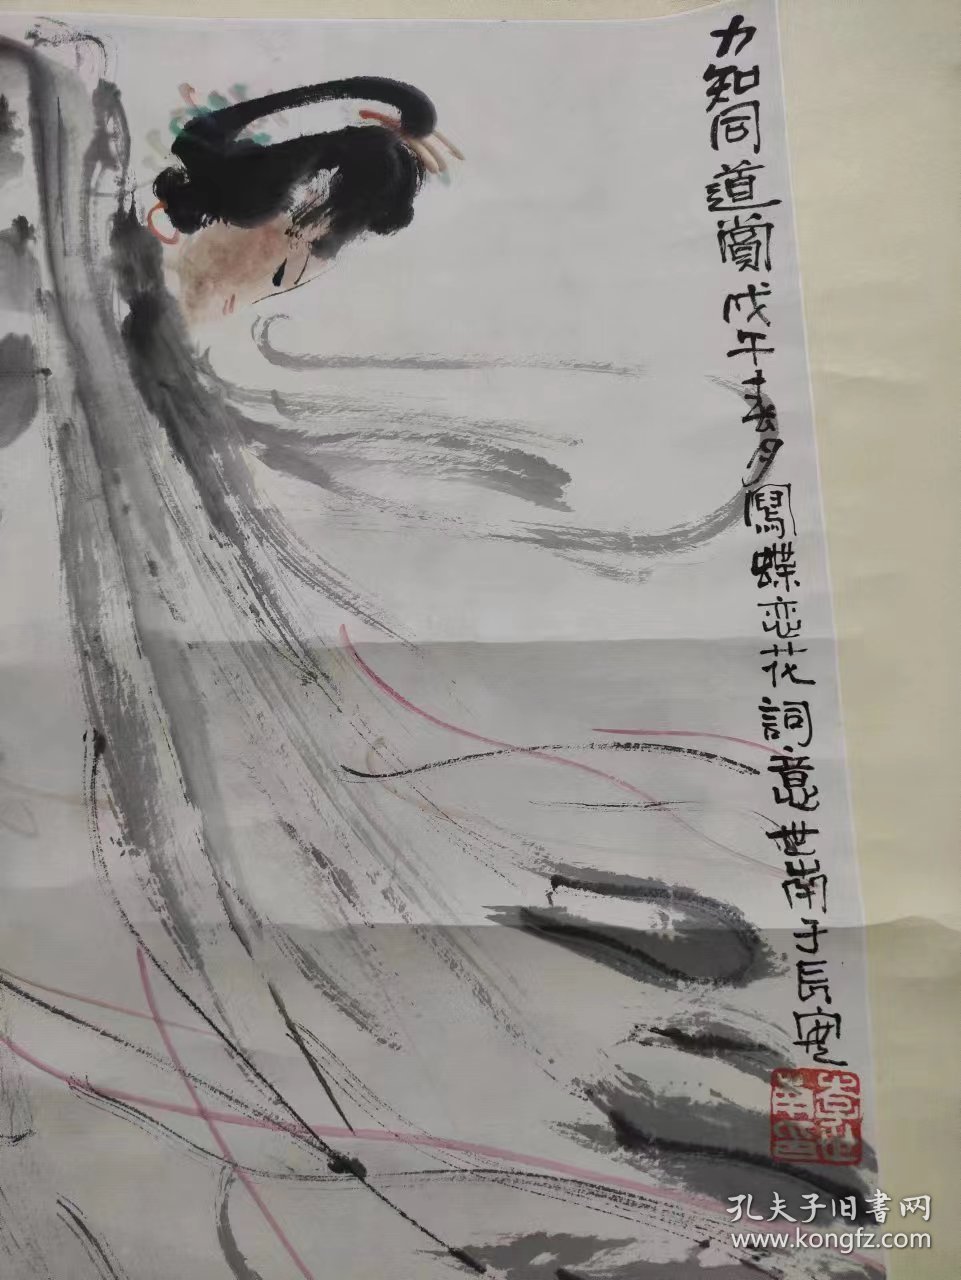 力知同道赏戊午春夕寫蝶恋花詞意世南于長安
李世南印
孔夫子旧書网
www.kongfz.com